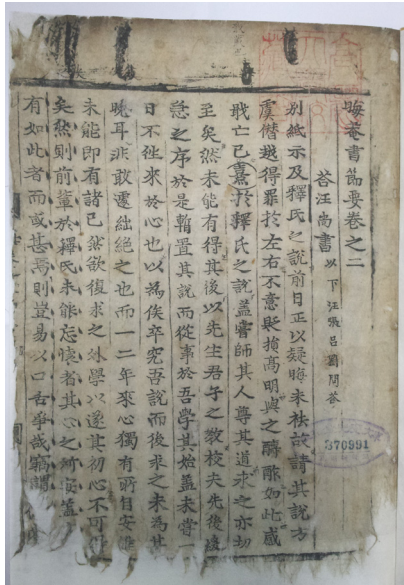 晦菴書節要卷之二
答汪尚書 以下汪張呂劉問答
別紙示及釋氏之說前日正以疑晦未袪故請其說方
虞僭越得罪於左右不意貶損高明與之醻酢如此感
戢亡已熹於釋氏之說蓋嘗師其人尊其道求之亦切
至矣然未能有得其後以先生君子之教校夫先後緩
急之序於是暫置其說而從事於吾學其始蓋未嘗一
日不往來於心也以為俟卒究吾說而後求之未為甚
晚耳非敢遽絀絕之也而一二年來心獨有所自安雖
未能即有諸已然欲復求之外學以遂其初心不可得
矣然則前輩於釋氏未能忘懷者其心之所安蓋
有如此者而或甚焉則豈易以口舌爭哉竊謂
370991